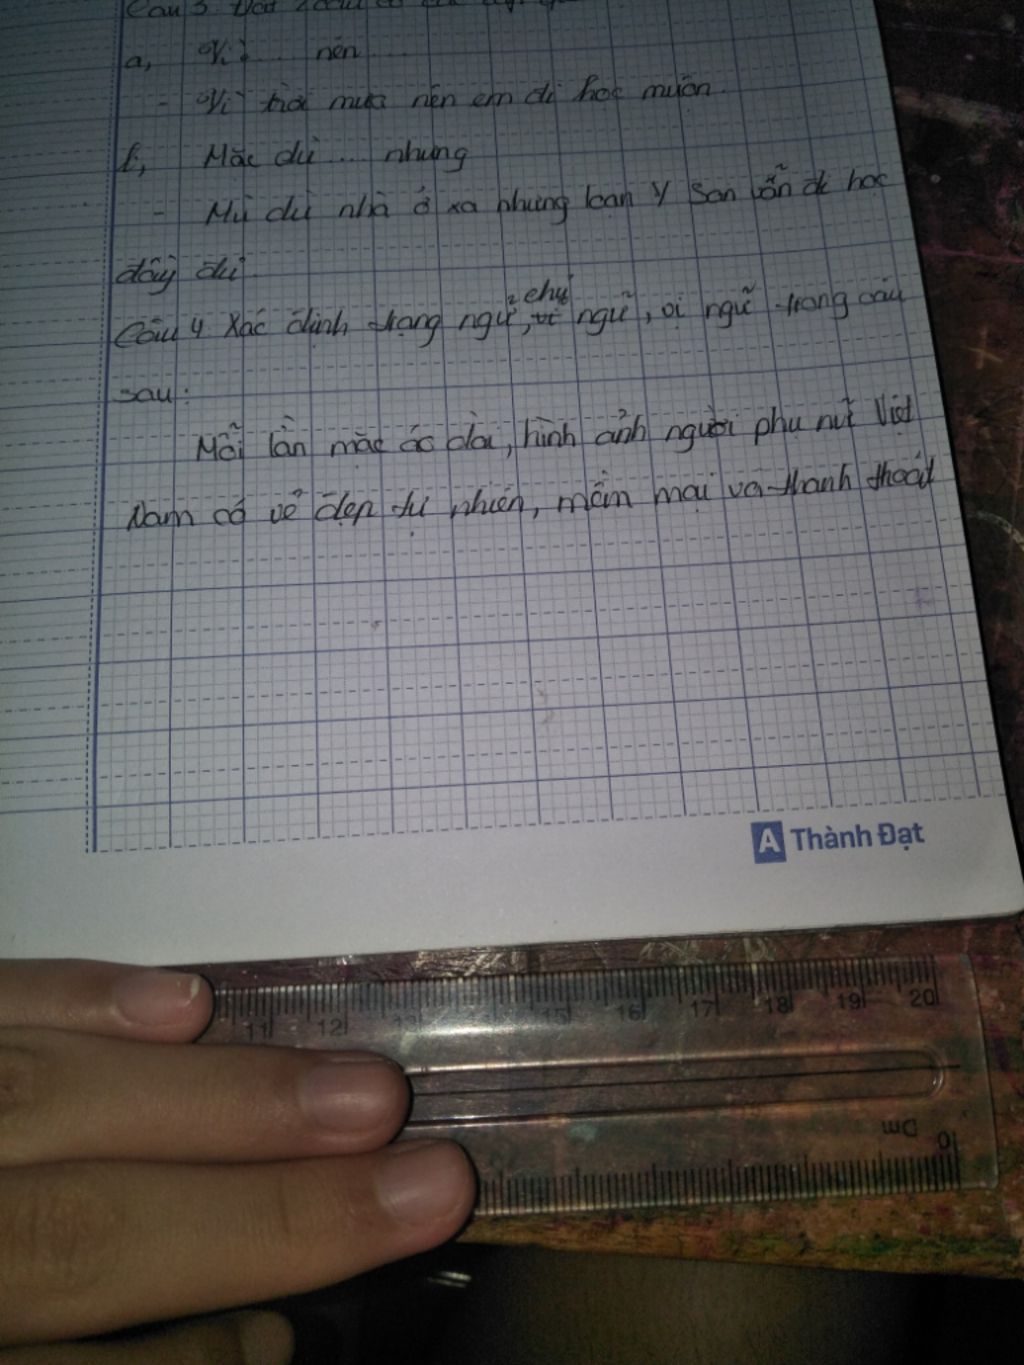 Câu 3 Đặt 2 câu có
a, Vì ... nên ...
- Vì trời mưa nên em đi học muộn.
b, Mặc dù ... nhưng
- Mù dù nhà ở xa nhưng bạn Y San vẫn đi học
đầy đủ.
chủ
Câu 4 Xác định trạng ngữ, vị ngữ, vị ngữ trong câu
sau:
Mỗi lần mặc áo dài, hình ảnh người phụ nữ Việt
Nam có vẻ đẹp tự nhiên, mềm mại và thanh thoát
A Thành Đạt
11 12 13 15 16 17 18 19 20
Dm 10